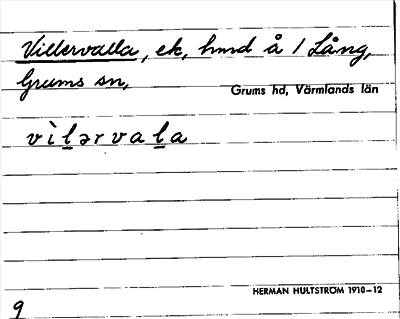 Villervalla, ek, hmd å 1 Lång,
Grums sn,
Grums hd, Värmlands län
vìl̲ərval̲a
HERMAN HULTSTRÖM 1910-12
9